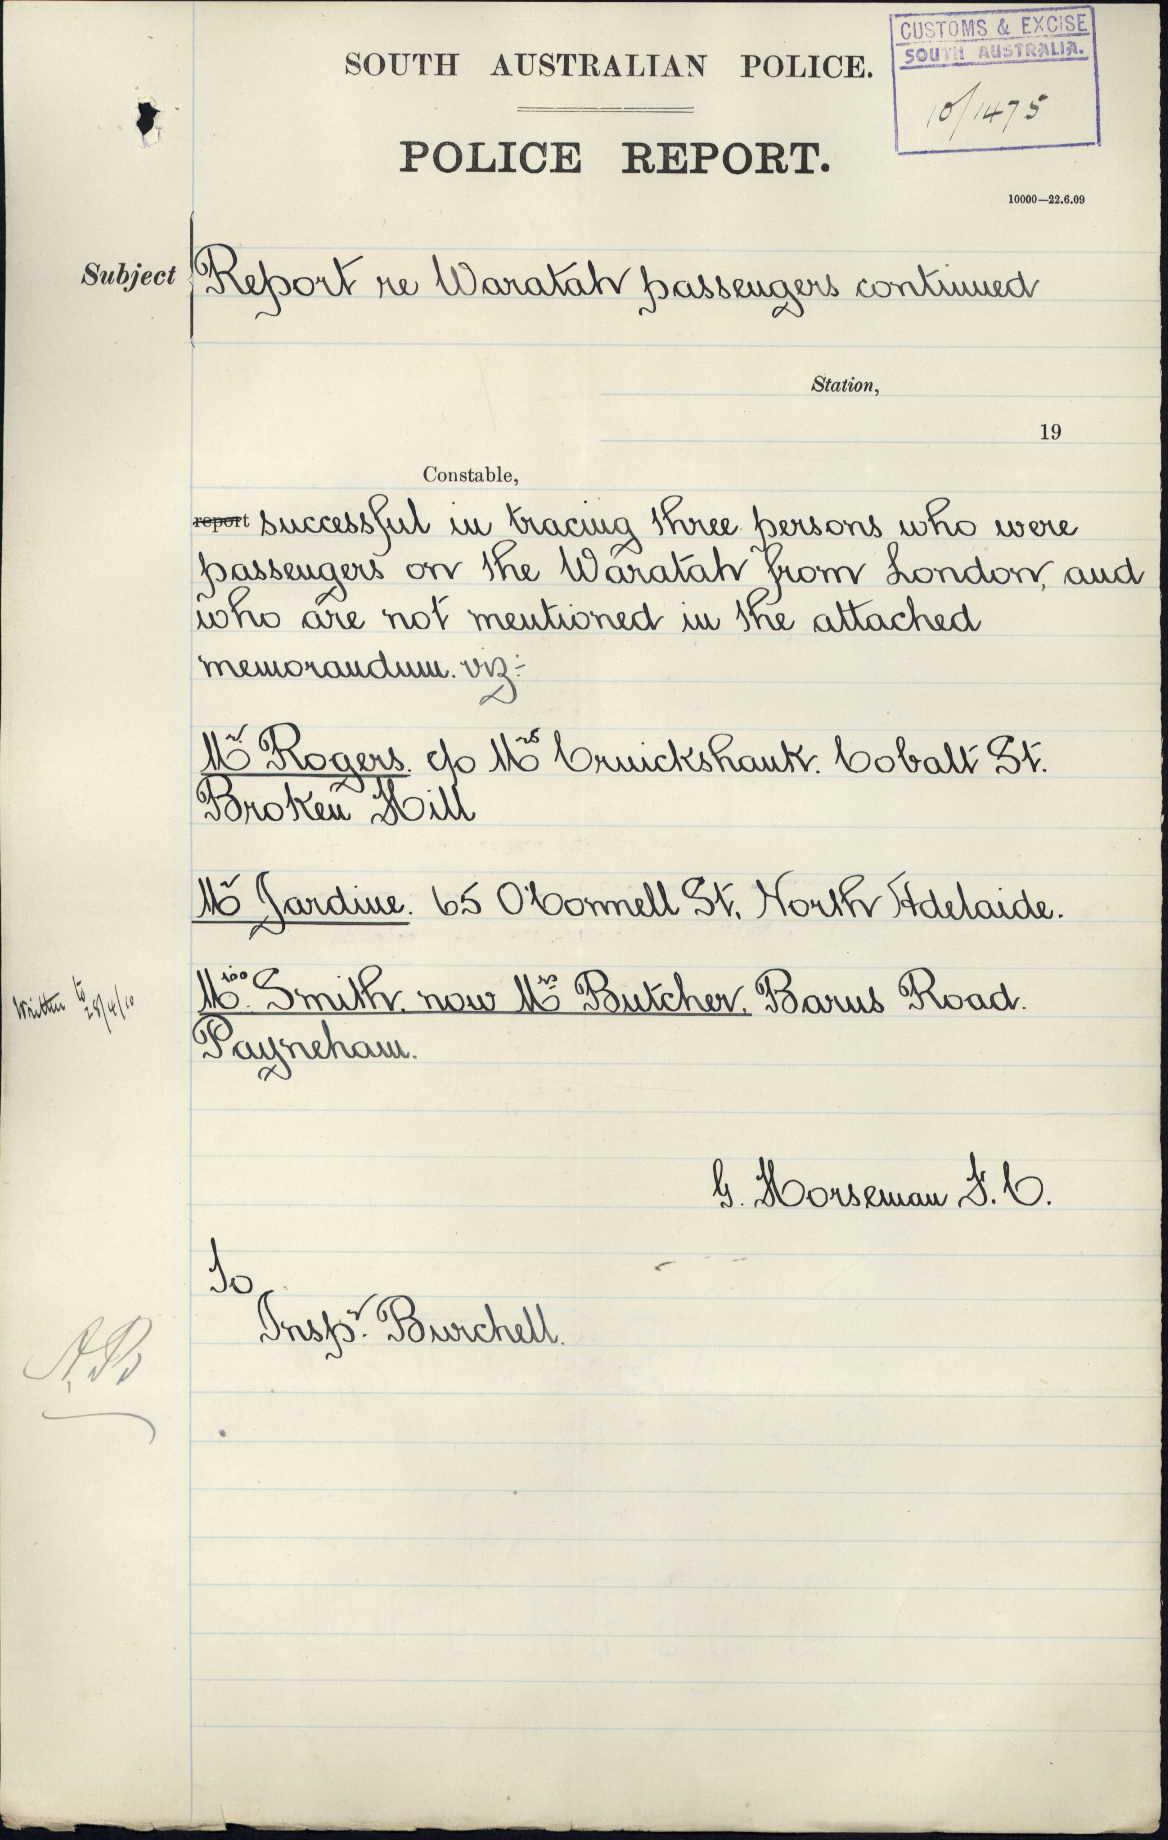 CUSTOMS & EXCISE
SOUTH AUSTRALIA.
10/1475
SOUTH AUSTRALIAN POLICE.
POLICE REPORT.
10000—22.6.09
Subject Report re Waratah passengers continued
Station,
19
Constable,
report successful in tracing three persons who were
passengers on the Waratah from London, and
who are not mentioned in the attached
memorandum. viz:-
Mr Rogers. c/o Mrs Cruickshank. Cobalt St.
Broken Hill
Mr Jardine. 65 O'Connell St. North Adelaide.
Written to 28/4/10
Miss. Smith. now Mrs Butcher. Barns Road.
Payneham.
G. Horseman F.C.
To
Inspr. Burchell.
A.B